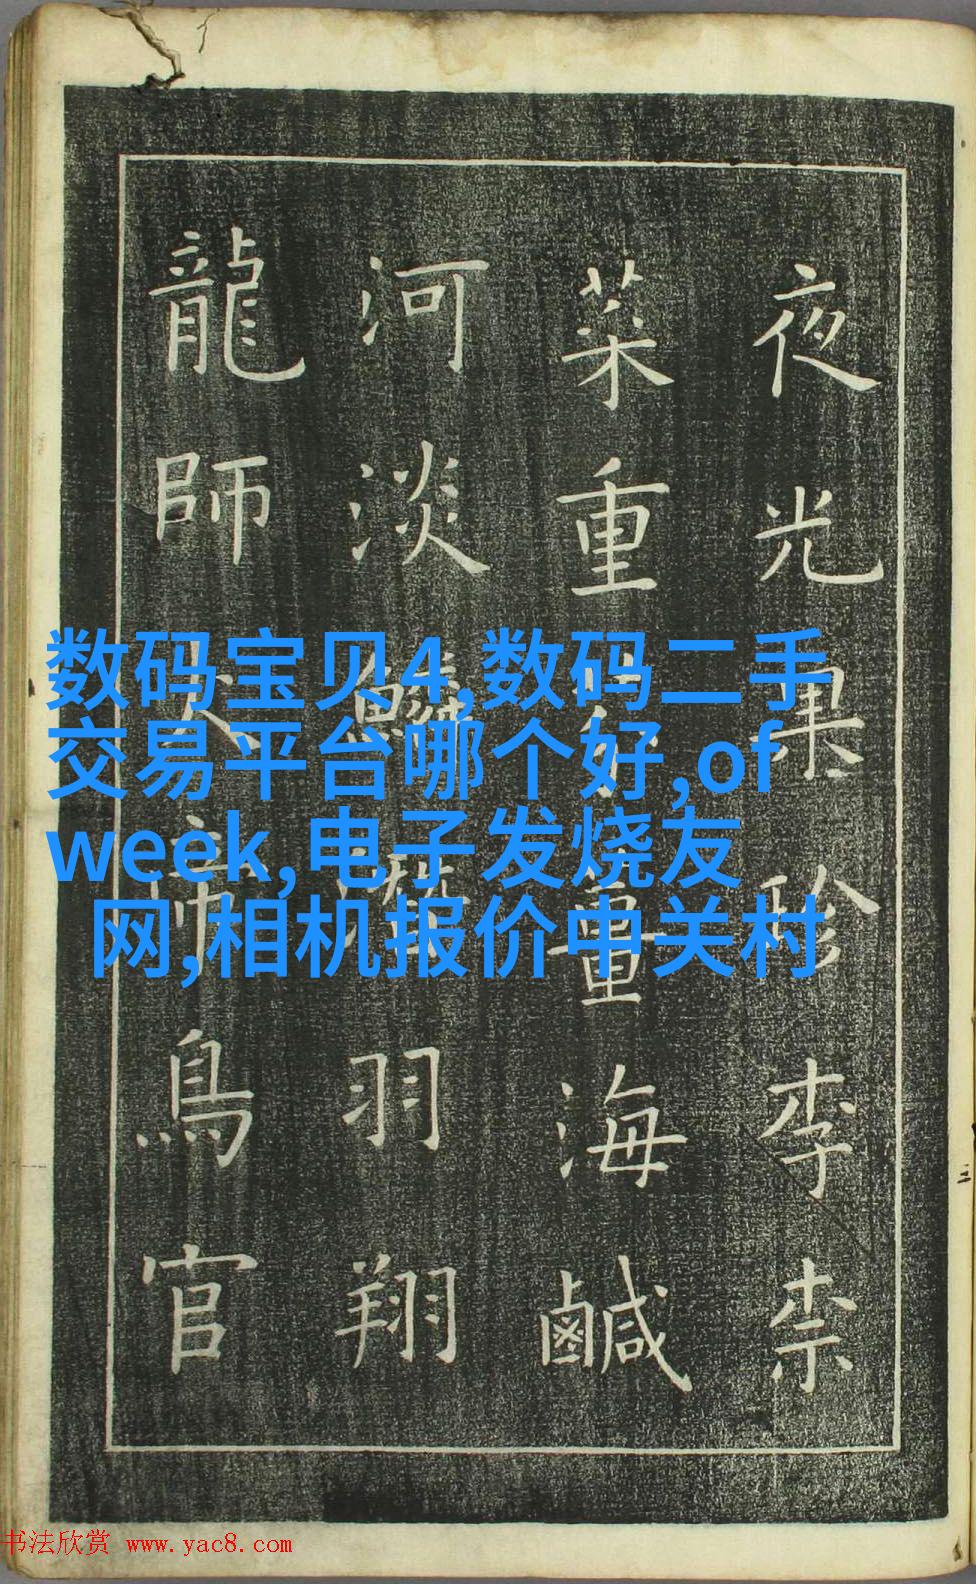 夜光果珍李柰
菜重芥薑海鹹
河淡鱗潛羽翔
龍師火帝鳥官
数码宝贝4,数码二手
交易平台哪个好,of
week,电子发烧友
网,相机报价中关村
书法欣赏 www.yac8.com